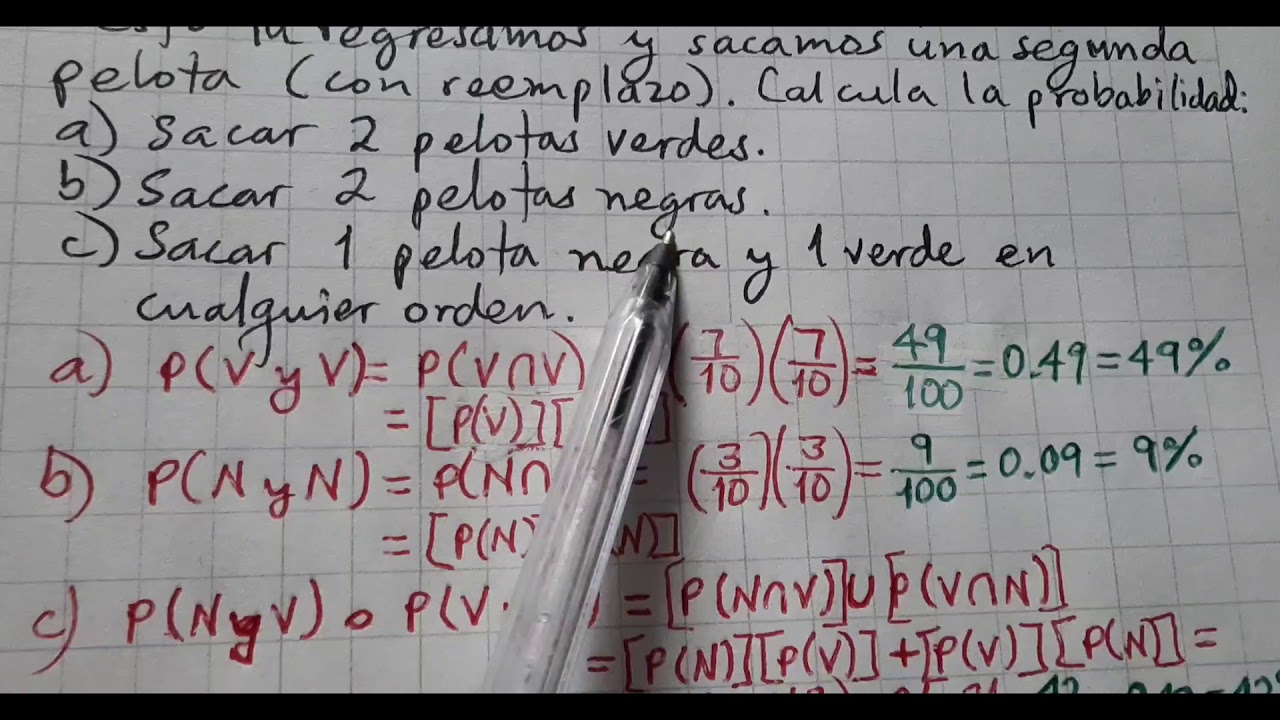 regresamos y sacamos una segunda
pelota (con reemplazo). Calcula la probabilidad:
a) Sacar 2 pelotas verdes.
b) Sacar 2 pelotas negras.
c) Sacar 1 pelota y 1 verde en
cualquier orden.
a) P(V y V)= P(V∩V) (7/10)(7/10)= 49/100 = 0.49 = 49%
= [P(V)][ ]
b) P(N y N) = P(N∩ = (3/10)(3/10)= 9/100 = 0.09 = 9%
= [P(N) N)]
c) P(N y V) o P(V ) = [P(N∩V)]∪[P(V∩N)]
= [P(N)][P(V)] + [P(V)][P(N)] =